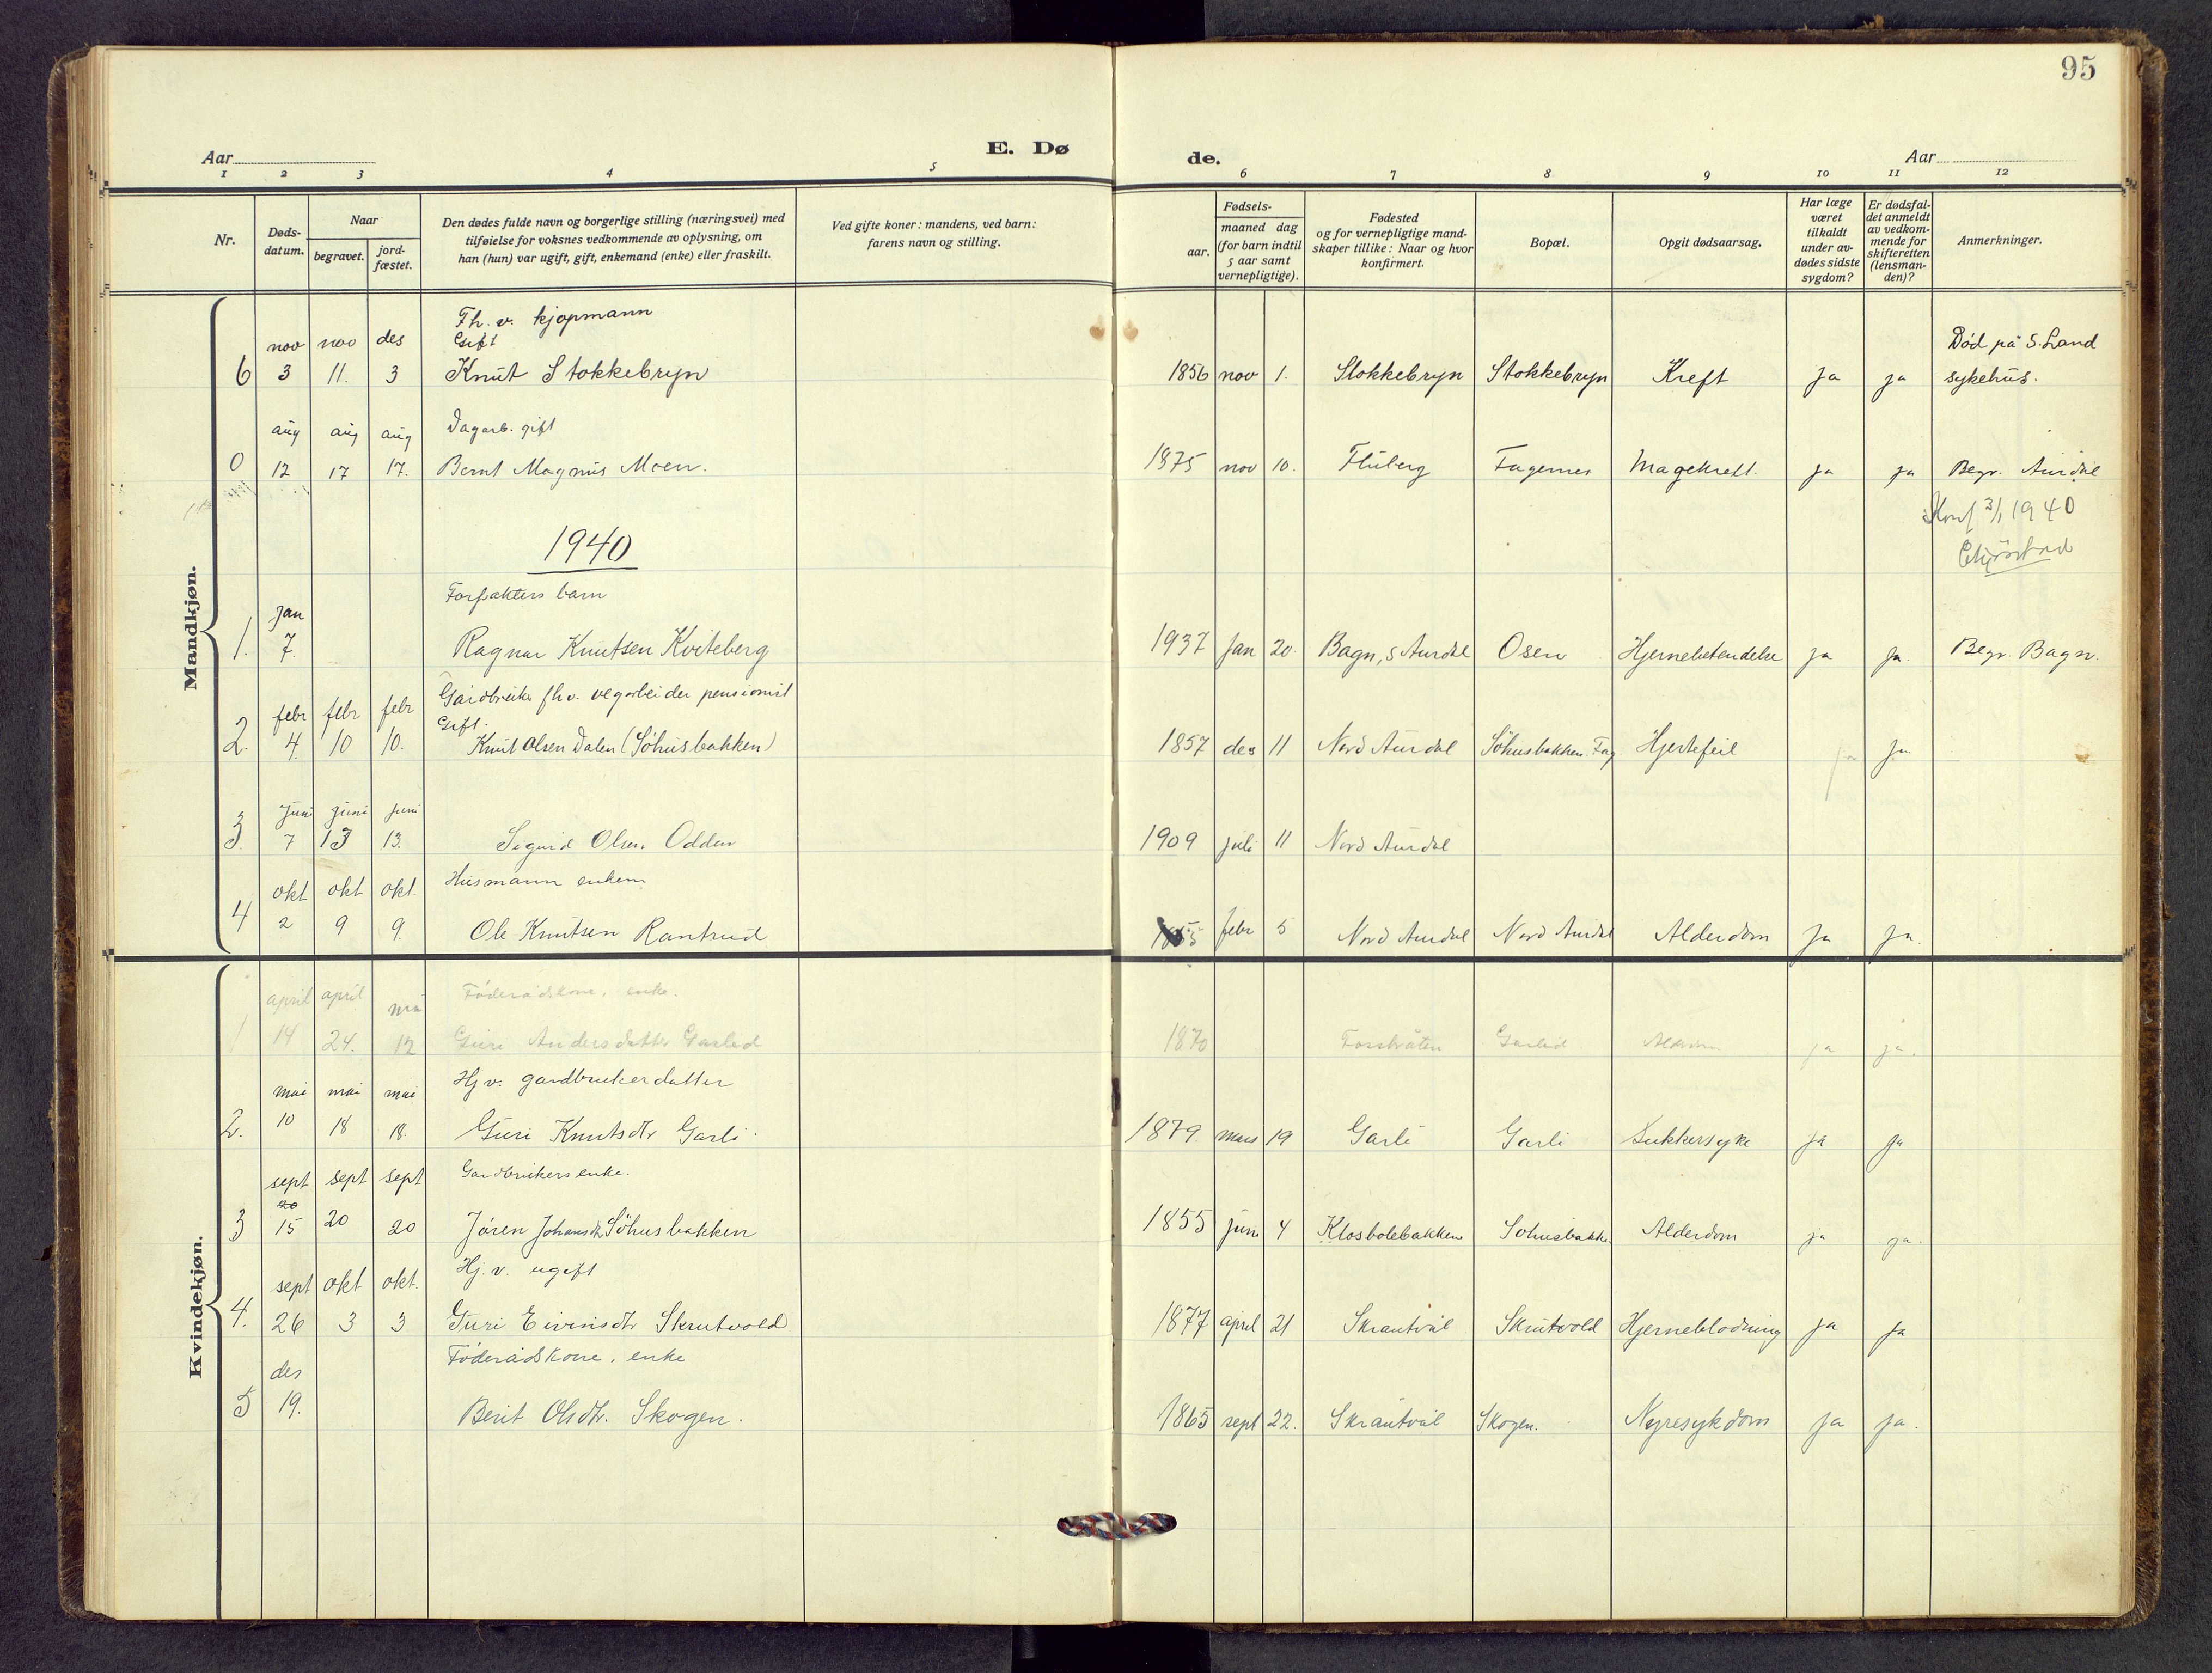 95
Aar
E. Dø
de.
Aar
1 2 3 4 5 6 7 8 9 10 11 12
Nr.
Døds-
datum.
Naar
begravet.
jord-
fæstet.
Den dødes fulde navn og borgerlige stilling (næringsvei) med
tilføielse for voksnes vedkommende av oplysning, om
han (hun) var ugift, gift, enkemand (enke) eller fraskilt.
Ved gifte koner: mandens, ved barn:
farens navn og stilling.
Fødsels-
aar.
maaned dag
(for barn indtil
5 aar samt
vernepligtige).
Fødested
og for vernepligtige mand-
skaper tillike: Naar og hvor
konfirmert.
Bopæl.
Opgit dødsaarsag.
Har læge
været
tilkaldt
under av-
dødes sidste
sygdom?
Er dødsfal-
det anmeldt
av vedkom-
mende for
skifteretten
(lensman-
den)?
Anmerkninger.
Mandkjøn.
Fh. v. kjøpmann
nov nov des Gift Død på S. Land
6 3 11. 3 Knut Stokkebryn 1856 nov 1. Stokkebryn Stokkebryn Kreft ja ja sykehus.
aug aug aug Dagarb. gift
0 12 17 17. Bernt Magnus Moen. 1875 nov 10. Fluberg Fagernes Magekreft. ja ja Begr. Aurdal
3/1 1940
1940
Forpakters barn
jan
1. 7. Ragnar Knutsen Kviteberg 1937 jan 20. Bagn, S Aurdal Osen Hjernebetendelse ja ja. Begr. Bagn.
Gardbruker fhv. vegarbeider pensionist
febr febr febr Gift.
2. 4. 10 10. Knut Olsen Dalen (Söhusbakken) 1857 des 11 Nord Aurdal Söhusbakken. Fag. Hjertefeil ja ja
Juni juni juni
3. 7 13 13. Sigurd Olsen Odden 1909 juli 11 Nord Aurdal
okt okt okt. Husmann enkem.
4 2 9 9. Ole Knutsen Rantrud febr 5 Nord Aurdal Nord Aurdal Alderdom ja ja.
Kvindekjøn.
april april mai Föderådskone, enke.
1 14 24. 12 Guri Andersdatter Garlid 1870 Garlid Alderdom ja ja.
mai mai mai Hj v. gardbrukerdatter
2. 10 18 18. Guri Knutsdtr Garli. 1879. mars 19 Garli Garli Sukkersyke ja ja
sept sept sept Gardbrukers enke.
20
3 15 20 20 Jören Johansdtr Söhusbakken 1855 juni 4 Klosbolebakken Söhusbakke Alderdom ja ja.
sept okt okt. Hj. v. ugift
4. 26 3 3 Guri Eivinsdtr Skrutvold 1877 april 21 Skrautvål Skrutvold Hjerneblødning ja ja
des Föderådskone, enke
5 19. Berit Olsdtr. Skogen. 1865 sept 22. Skrautvål Skogen. Nyresykdom ja ja.